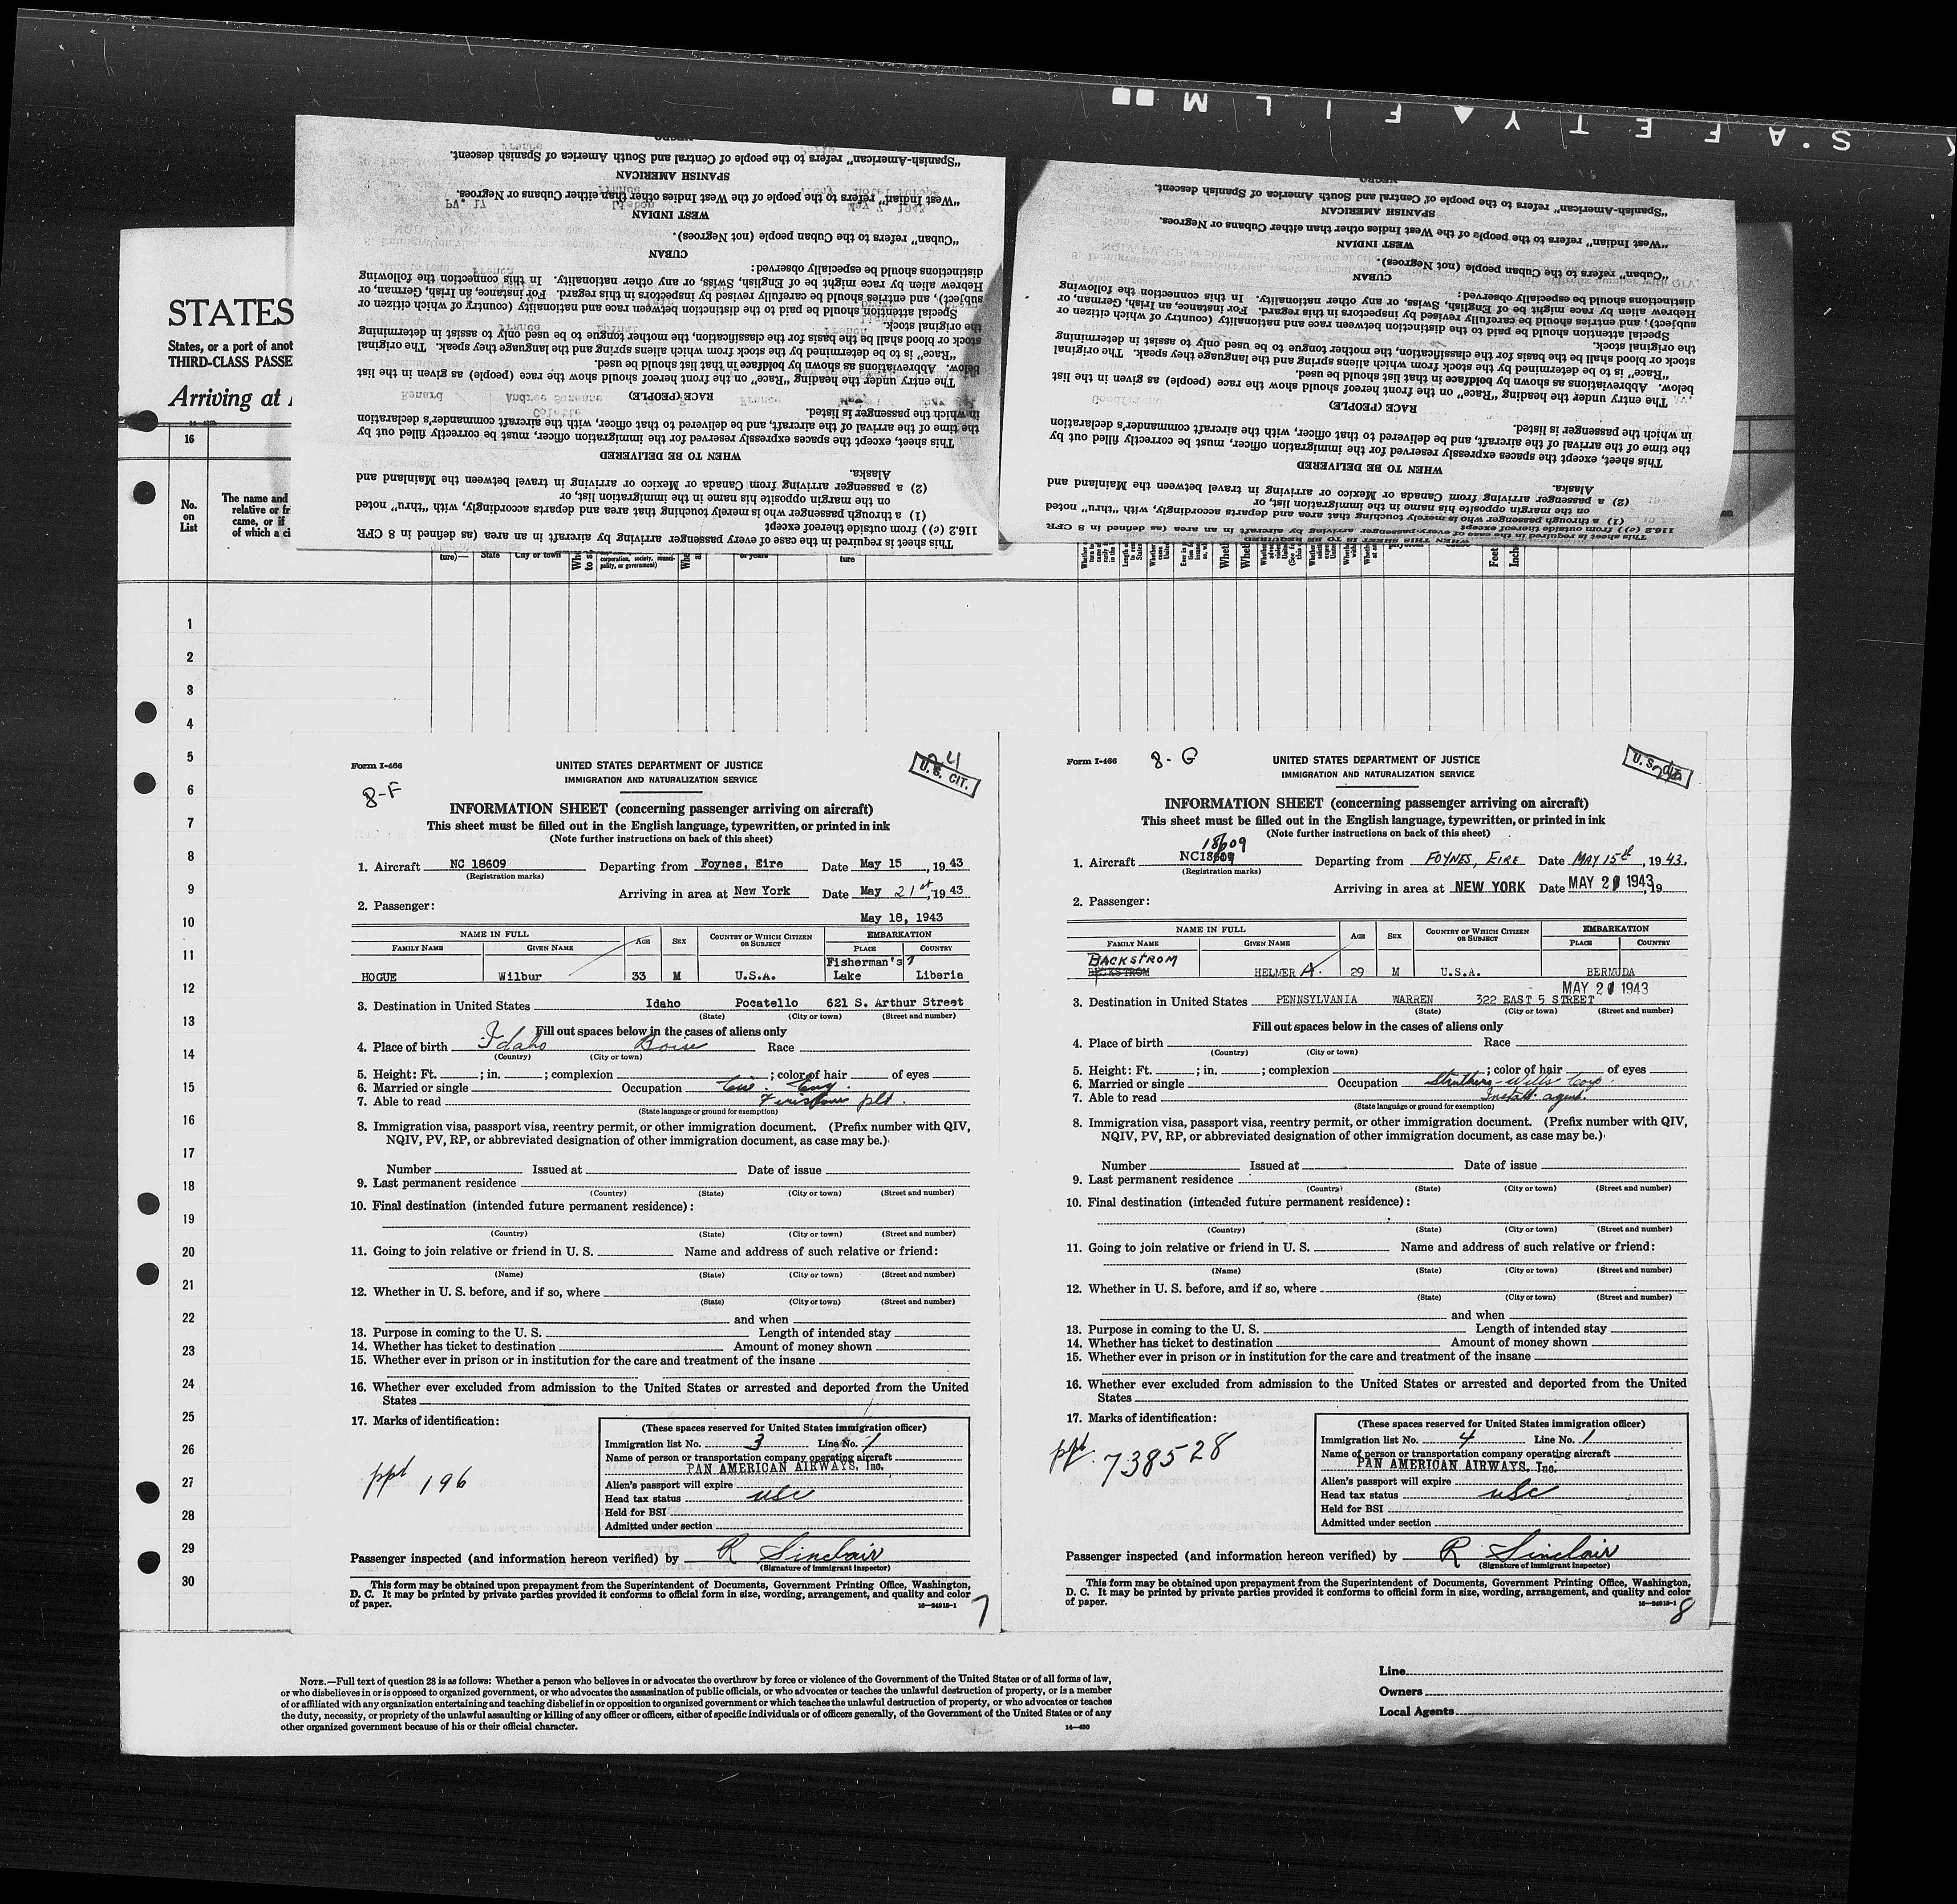 SAFETY FILM
STATES
States, or a port of anot
THIRD-CLASS PASSE
Arriving at
16
No.
on
List
The name and
relative or fr
came, or if
of which a ci
"Spanish-American" refers to the people of Central and South America of Spanish descent.
SPANISH AMERICAN
"West Indian" refers to the people of the West Indies other than either Cubans or Negroes.
WEST INDIAN
"Cuban" refers to the Cuban people (not Negroes).
CUBAN
distinctions should be especially observed:
Hebrew alien by race might be of English, Swiss, or any other nationality. In this connection the following
subject), and entries should be carefully revised by inspectors in this regard. For instance, an Irish, German, or
Special attention should be paid to the distinction between race and nationality (country of which citizen or
the original stock.
stock or blood shall be the basis for the classification, the mother tongue to be used only to assist in determining
"Race" is to be determined by the stock from which aliens spring and the language they speak. The original
below. Abbreviations as shown by boldface in that list should be used.
The entry under the heading "Race" on the front hereof should show the race (people) as given in the list
RACE (PEOPLE)
in which the passenger is listed.
the time of the arrival of the aircraft, and be delivered to that officer, with the aircraft commander's declaration
This sheet, except the spaces expressly reserved for the immigration officer, must be correctly filled out by
WHEN TO BE DELIVERED
Alaska.
(2) a passenger arriving from Canada or Mexico or arriving in travel between the Mainland and
on the margin opposite his name in the immigration list, or
(1) a through passenger who is merely touching that area and departs accordingly, with "thru" noted
116.2 (c)) from outside thereof except
This sheet is required in the case of every passenger arriving by aircraft in an area (as defined in 8 CFR
"Spanish-American" refers to the people of Central and South America of Spanish descent.
SPANISH AMERICAN
"West Indian" refers to the people of the West Indies other than either Cubans or Negroes.
WEST INDIAN
"Cuban" refers to the Cuban people (not Negroes).
CUBAN
distinctions should be especially observed:
Hebrew alien by race might be of English, Swiss, or any other nationality. In this connection the following
subject), and entries should be carefully revised by inspectors in this regard. For instance, an Irish, German, or
Special attention should be paid to the distinction between race and nationality (country of which citizen or
the original stock.
stock or blood shall be the basis for the classification, the mother tongue to be used only to assist in determining
"Race" is to be determined by the stock from which aliens spring and the language they speak. The original
below. Abbreviations as shown by boldface in that list should be used.
The entry under the heading "Race" on the front hereof should show the race (people) as given in the list
RACE (PEOPLE)
in which the passenger is listed.
the time of the arrival of the aircraft, and be delivered to that officer, with the aircraft commander's declaration
This sheet, except the spaces expressly reserved for the immigration officer, must be correctly filled out by
WHEN TO BE DELIVERED
Alaska.
(2) a passenger arriving from Canada or Mexico or arriving in travel between the Mainland and
on the margin opposite his name in the immigration list, or
(1) a through passenger who is merely touching that area and departs accordingly, with "thru" noted
116.2 (c)) from outside thereof except
This sheet is required in the case of every passenger arriving by aircraft in an area (as defined in 8 CFR
WHEN THIS SHEET IS TO BE REQUIRED
ture)— State City or town corporation, society, municipality, or government) or years ture
Feet Inches
1
2
3
4
5
6
7
8
9
10
11
12
13
14
15
16
17
18
19
20
21
22
23
24
25
26
27
28
29
30
Form I-466
8-F
24
U. S. CIT.
UNITED STATES DEPARTMENT OF JUSTICE
IMMIGRATION AND NATURALIZATION SERVICE
INFORMATION SHEET (concerning passenger arriving on aircraft)
This sheet must be filled out in the English language, typewritten, or printed in ink
(Note further instructions on back of this sheet)
1. Aircraft NC 18609 Departing from Foynes, Eire Date May 15, 1943
(Registration marks)
Arriving in area at New York Date May 21st, 1943
2. Passenger:
May 18, 1943
NAME IN FULL AGE SEX COUNTRY OF WHICH CITIZEN OR SUBJECT EMBARKATION
FAMILY NAME GIVEN NAME PLACE COUNTRY
HOGUE Wilbur 33 M U.S.A. Fisherman's Lake Liberia
3. Destination in United States Idaho Pocatello 621 S. Arthur Street
(State) (City or town) (Street and number)
Fill out spaces below in the cases of aliens only
4. Place of birth Idaho Boise Race
(Country) (City or town)
5. Height: Ft. ; in. ; complexion ; color of hair of eyes
6. Married or single Occupation Civ. Eng.
7. Able to read Firestone plt.
(State language or ground for exemption)
8. Immigration visa, passport visa, reentry permit, or other immigration document. (Prefix number with QIV,
NQIV, PV, RP, or abbreviated designation of other immigration document, as case may be.)
Number Issued at Date of issue
9. Last permanent residence
(Country) (State) (City or town) (Street and number)
10. Final destination (intended future permanent residence):
(Country) (State) (City or town) (Street and number)
11. Going to join relative or friend in U. S. Name and address of such relative or friend:
(Name) (State) (City or town) (Street and number)
12. Whether in U. S. before, and if so, where
(State) (City or town) (Street and number)
and when
13. Purpose in coming to the U. S. Length of intended stay
14. Whether has ticket to destination Amount of money shown
15. Whether ever in prison or in institution for the care and treatment of the insane
16. Whether ever excluded from admission to the United States or arrested and deported from the United
States
17. Marks of identification:
ppt 196
(These spaces reserved for United States immigration officer)
Immigration list No. 3 Line No. 1
Name of person or transportation company operating aircraft
PAN AMERICAN AIRWAYS, Inc.
Alien's passport will expire
Head tax status usc
Held for BSI
Admitted under section
Passenger inspected (and information hereon verified) by R Sinclair
(Signature of immigrant inspector)
This form may be obtained upon prepayment from the Superintendent of Documents, Government Printing Office, Washington,
D. C. It may be printed by private parties provided it conforms to official form in size, wording, arrangement, and quality and color
of paper. 16—24915-1
7
Form I-466
8-G
U. S. CIT.
UNITED STATES DEPARTMENT OF JUSTICE
IMMIGRATION AND NATURALIZATION SERVICE
INFORMATION SHEET (concerning passenger arriving on aircraft)
This sheet must be filled out in the English language, typewritten, or printed in ink
(Note further instructions on back of this sheet)
18609
1. Aircraft NC18609 Departing from FOYNES, EIRE Date MAY 15th, 1943.
(Registration marks)
Arriving in area at NEW YORK Date MAY 21 1943, 19
2. Passenger:
NAME IN FULL AGE SEX COUNTRY OF WHICH CITIZEN OR SUBJECT EMBARKATION
FAMILY NAME GIVEN NAME PLACE COUNTRY
BACKSTROM
BECKSTROM HELMER A. 29 M U.S.A. BERMUDA
MAY 21 1943
3. Destination in United States PENNSYLVANIA WARREN 322 EAST 5 STREET
(State) (City or town) (Street and number)
Fill out spaces below in the cases of aliens only
4. Place of birth Race
(Country) (City or town)
5. Height: Ft. ; in. ; complexion ; color of hair of eyes
6. Married or single Occupation Struthers-Wells Corp.
7. Able to read Install. agent.
(State language or ground for exemption)
8. Immigration visa, passport visa, reentry permit, or other immigration document. (Prefix number with QIV,
NQIV, PV, RP, or abbreviated designation of other immigration document, as case may be.)
Number Issued at Date of issue
9. Last permanent residence
(Country) (State) (City or town) (Street and number)
10. Final destination (intended future permanent residence):
(Country) (State) (City or town) (Street and number)
11. Going to join relative or friend in U. S. Name and address of such relative or friend:
(Name) (State) (City or town) (Street and number)
12. Whether in U. S. before, and if so, where
(State) (City or town) (Street and number)
and when
13. Purpose in coming to the U. S. Length of intended stay
14. Whether has ticket to destination Amount of money shown
15. Whether ever in prison or in institution for the care and treatment of the insane
16. Whether ever excluded from admission to the United States or arrested and deported from the United
States
17. Marks of identification:
ppt. 738528
(These spaces reserved for United States immigration officer)
Immigration list No. 4 Line No. 1
Name of person or transportation company operating aircraft
PAN AMERICAN AIRWAYS, Inc.
Alien's passport will expire
Head tax status usc
Held for BSI
Admitted under section
Passenger inspected (and information hereon verified) by R Sinclair
(Signature of immigrant inspector)
This form may be obtained upon prepayment from the Superintendent of Documents, Government Printing Office, Washington,
D. C. It may be printed by private parties provided it conforms to official form in size, wording, arrangement, and quality and color
of paper. 16—24915-1
8
NOTE.—Full text of question 28 is as follows: Whether a person who believes in or advocates the overthrow by force or violence of the Government of the United States or of all forms of law,
or who disbelieves in or is opposed to organized government, or who advocates the assassination of public officials, or who advocates or teaches the unlawful destruction of property, or is a member
of or affiliated with any organization entertaining and teaching disbelief in or opposition to organized government or which teaches the unlawful destruction of property, or who advocates or teaches
the duty, necessity, or propriety of the unlawful assaulting or killing of any officer or officers, either of specific individuals or of officers generally, of the Government of the United States or of any
other organized government because of his or their official character. 14—430
Line
Owners
Local Agents